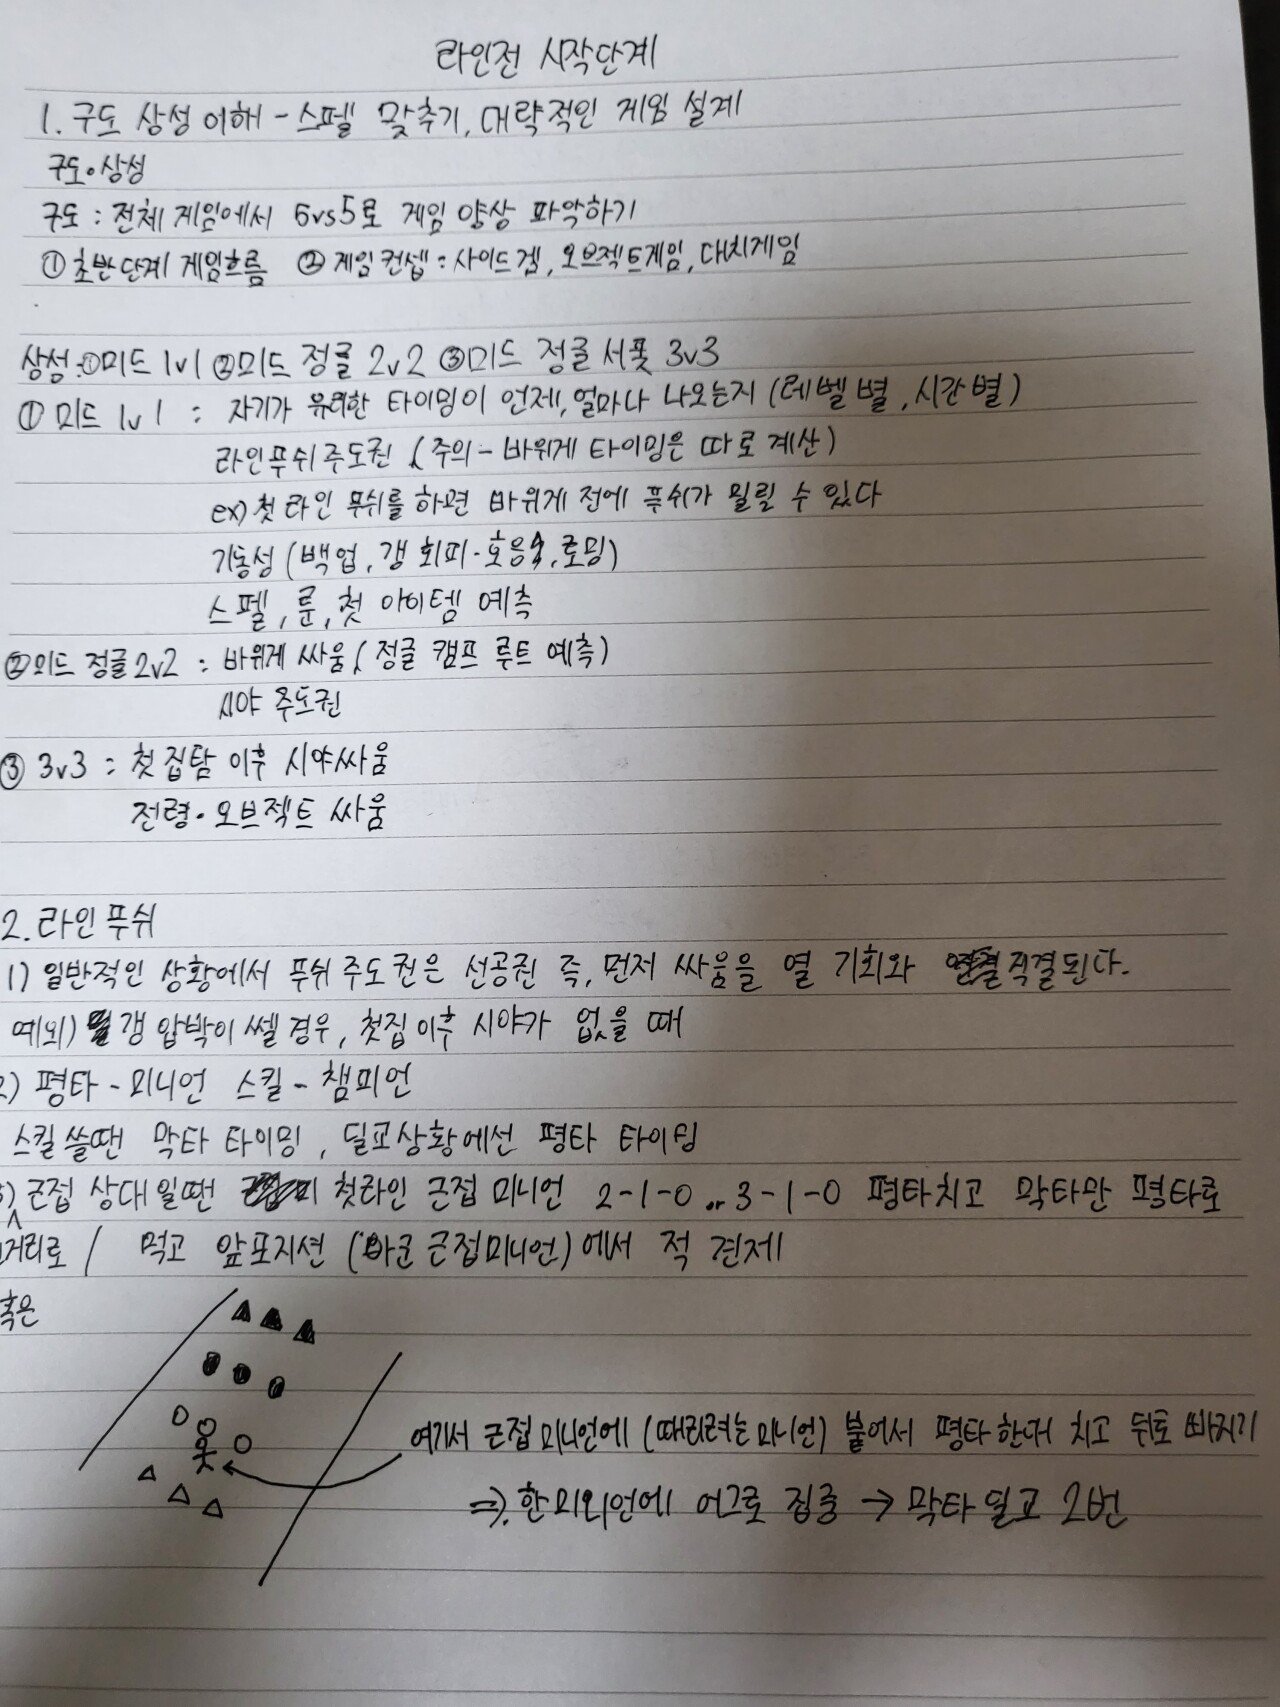 라인전 시작단계
1. 구도 상성 이해 - 스펠 맞추기, 대략적인 게임 설계
구도·상성
구도 : 전체 게임에서 5vs5로 게임 양상 파악하기
① 초반단계 게임흐름 ② 게임 컨셉 : 사이드겜, 오브젝트게임, 대치게임
상성:①미드 1v1 ②미드 정글 2v2 ③미드 정글 서폿 3v3
① 미드 1v1 : 자기가 유리한 타이밍이 언제, 얼마나 나오는지 (레벨별, 시간별)
라인푸쉬주도권 (주의 - 바위게 타이밍은 따로 계산)
ex) 첫 라인 푸쉬를 하면 바위게 전에 푸쉬가 밀릴 수 있다
기동성 (백업, 갱 회피·호응, 로밍)
스펠, 룬, 첫 아이템 예측
②미드 정글2v2 : 바위게 싸움 (정글 캠프 루트 예측)
시야 주도권
③ 3v3 : 첫집탐 이후 시야싸움
전령·오브젝트 싸움
2. 라인푸쉬
1) 일반적인 상황에서 푸쉬 주도권은 선공권 즉, 먼저 싸움을 열 기회와 직결된다.
예외) 갱 압박이 쎌경우, 첫집이후 시야가 없을 때
2) 평타 - 미니언 스킬 - 챔피언
스킬 쓸땐 막타 타이밍, 딜교상황에선 평타 타이밍
3) 근접 상대일땐 첫라인 근접 미니언 2-1-0 or 3-1-0 평타치고 막타만 평타로
거리로 / 먹고 앞포지션 (바로 근접미니언)에서 적 견제
혹은
여기서 근접 미니언에 (때리려는미니언) 붙어서 평타한대 치고 뒤로 빠지기
⇒ 한 미니언에 어그로 집중 → 막타 딜교 2번